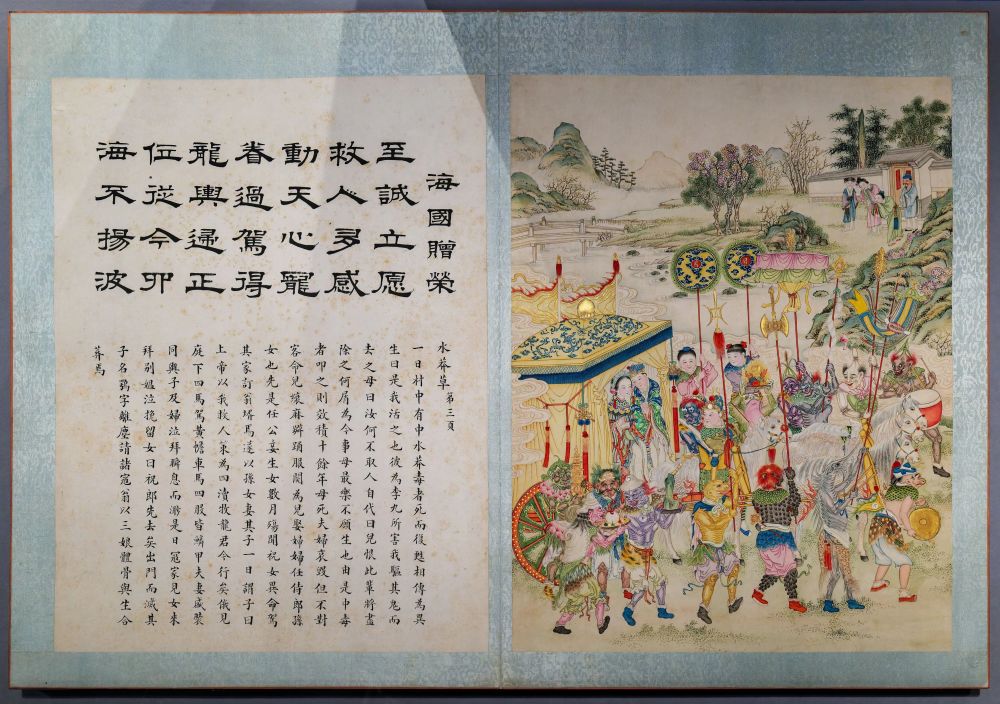 海國贈榮
至誠立愿
救人多感
動天心寵
眷過駕得
龍輿歸正
位從今卯
海不揚波
水莽草第三頁
一日村中有中水莽毒者死而復甦相傳為異
生曰是我活之也彼為李九所害我驅其鬼而
去之母曰汝何不取人自代曰兒恨此輩將盡
除之何屑為今事母最樂不願生也由是中毒
者叩之則效積十餘年母死夫婦哀毀但不對
客命兒縗麻擗踊服闋為兒娶婦婦任侍郎孫
女也先是任公妾生女數月殤聞祝女異命駕
其家訂翁壻焉遂以孫女妻其子一日謂子曰
上帝以我救人策為四瀆牧龍君今行矣俄見
庭下四馬駕黃幨車馬四股皆鱗甲夫妻盛裝
同輿子及婦泣拜瞬息而渺是日寇家見女來
拜別媼泣挽留女曰祝郎先去矣出門而滅其
子名鶚字離塵請諸寇翁以三娘體骨與生合
葬焉